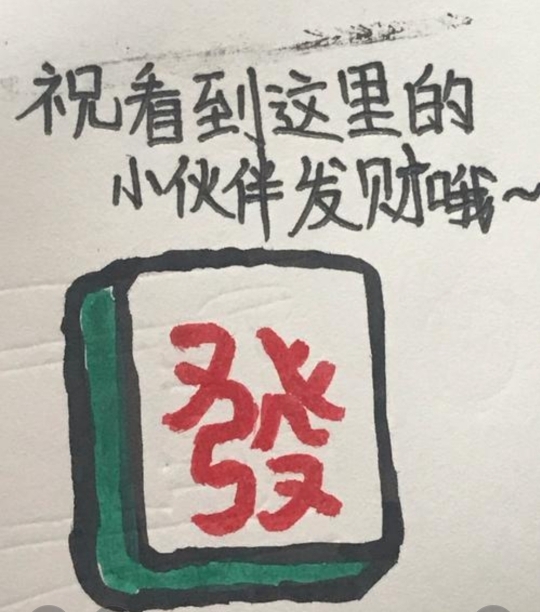 祝看到这里的
小伙伴发财哦~
發